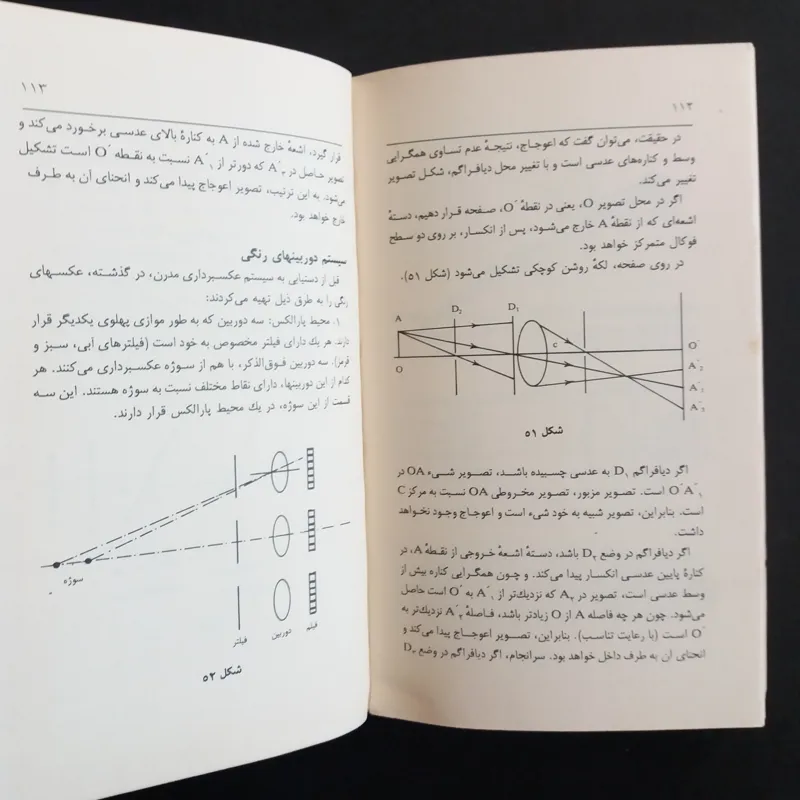 ۱۱۲
در حقیقت، می‌توان گفت که اعوجاج، نتیجهٔ عدم تساوی همگرایی
وسط و کناره‌های عدسی است و با تغییر محل دیافراگم، شکل تصویر
تغییر می‌کند.
اگر در محل تصویر O، یعنی در نقطهٔ O´، صفحه قرار دهیم، دستهٔ
اشعه‌ای که از نقطهٔ A خارج می‌شود، پس از انکسار، بر روی دو سطح
فوکال متمرکز خواهد بود.
در روی صفحه، لکهٔ روشن کوچکی تشکیل می‌شود (شکل ۵۱).
A D₂ D₁
c
O O´
A´₂
A´₁
A´₃
شکل ۵۱
اگر دیافراگم D₁ به عدسی چسبیده باشد، تصویر شیء OA در
O´A´₁ است. تصویر مزبور، تصویر مخروطی OA نسبت به مرکز C
است. بنابراین، تصویر شبیه به خود شیء است و اعوجاج وجود نخواهد
داشت.
اگر دیافراگم در وضع D₂ باشد، دستهٔ اشعهٔ خروجی از نقطهٔ A، در
کنارهٔ پایین عدسی انکسار پیدا می‌کند. و چون همگرایی کناره بیش از
وسط عدسی است، تصویر در A₂ که نزدیك‌تر از A´₁ به O´ است حاصل
می‌شود. چون هر چه فاصله A از O زیادتر باشد، فاصلهٔ A´₂ نزدیك‌تر به
O´ است (با رعایت تناسب). بنابراین، تصویر اعوجاج پیدا می‌کند و
انحنای آن به طرف داخل خواهد بود. سرانجام، اگر دیافراگم در وضع D₃
۱۱۳
قرار گیرد، اشعهٔ خارج شده از A به کنارهٔ بالای عدسی برخورد می‌کند و
تصویر حاصل در A´₃ که دورتر از A´₁ نسبت به نقطه O´ است تشکیل
می‌شود. به این ترتیب، تصویر اعوجاج پیدا می‌کند و انحنای آن به طرف
خارج خواهد بود.
سیستم دوربینهای رنگی
قبل از دستیابی به سیستم عکسبرداری مدرن، در گذشته، عکسهای
رنگی را به طرق ذیل تهیه می‌کردند:
۱. محیط پارالکس: سه دوربین که به طور موازی پهلوی یکدیگر قرار
دارند. هر یك دارای فیلتر مخصوص به خود است (فیلترهای آبی، سبز و
قرمز). سه دوربین فوق‌الذکر، با هم از سوژه عکسبرداری می‌کنند. هر
کدام از این دوربینها، دارای نقاط مختلف نسبت به سوژه هستند. این سه
قسمت از این سوژه، در یك محیط پارالکس قرار دارند.
سوژه
فیلتر دوربین فیلم
شکل ۵۲